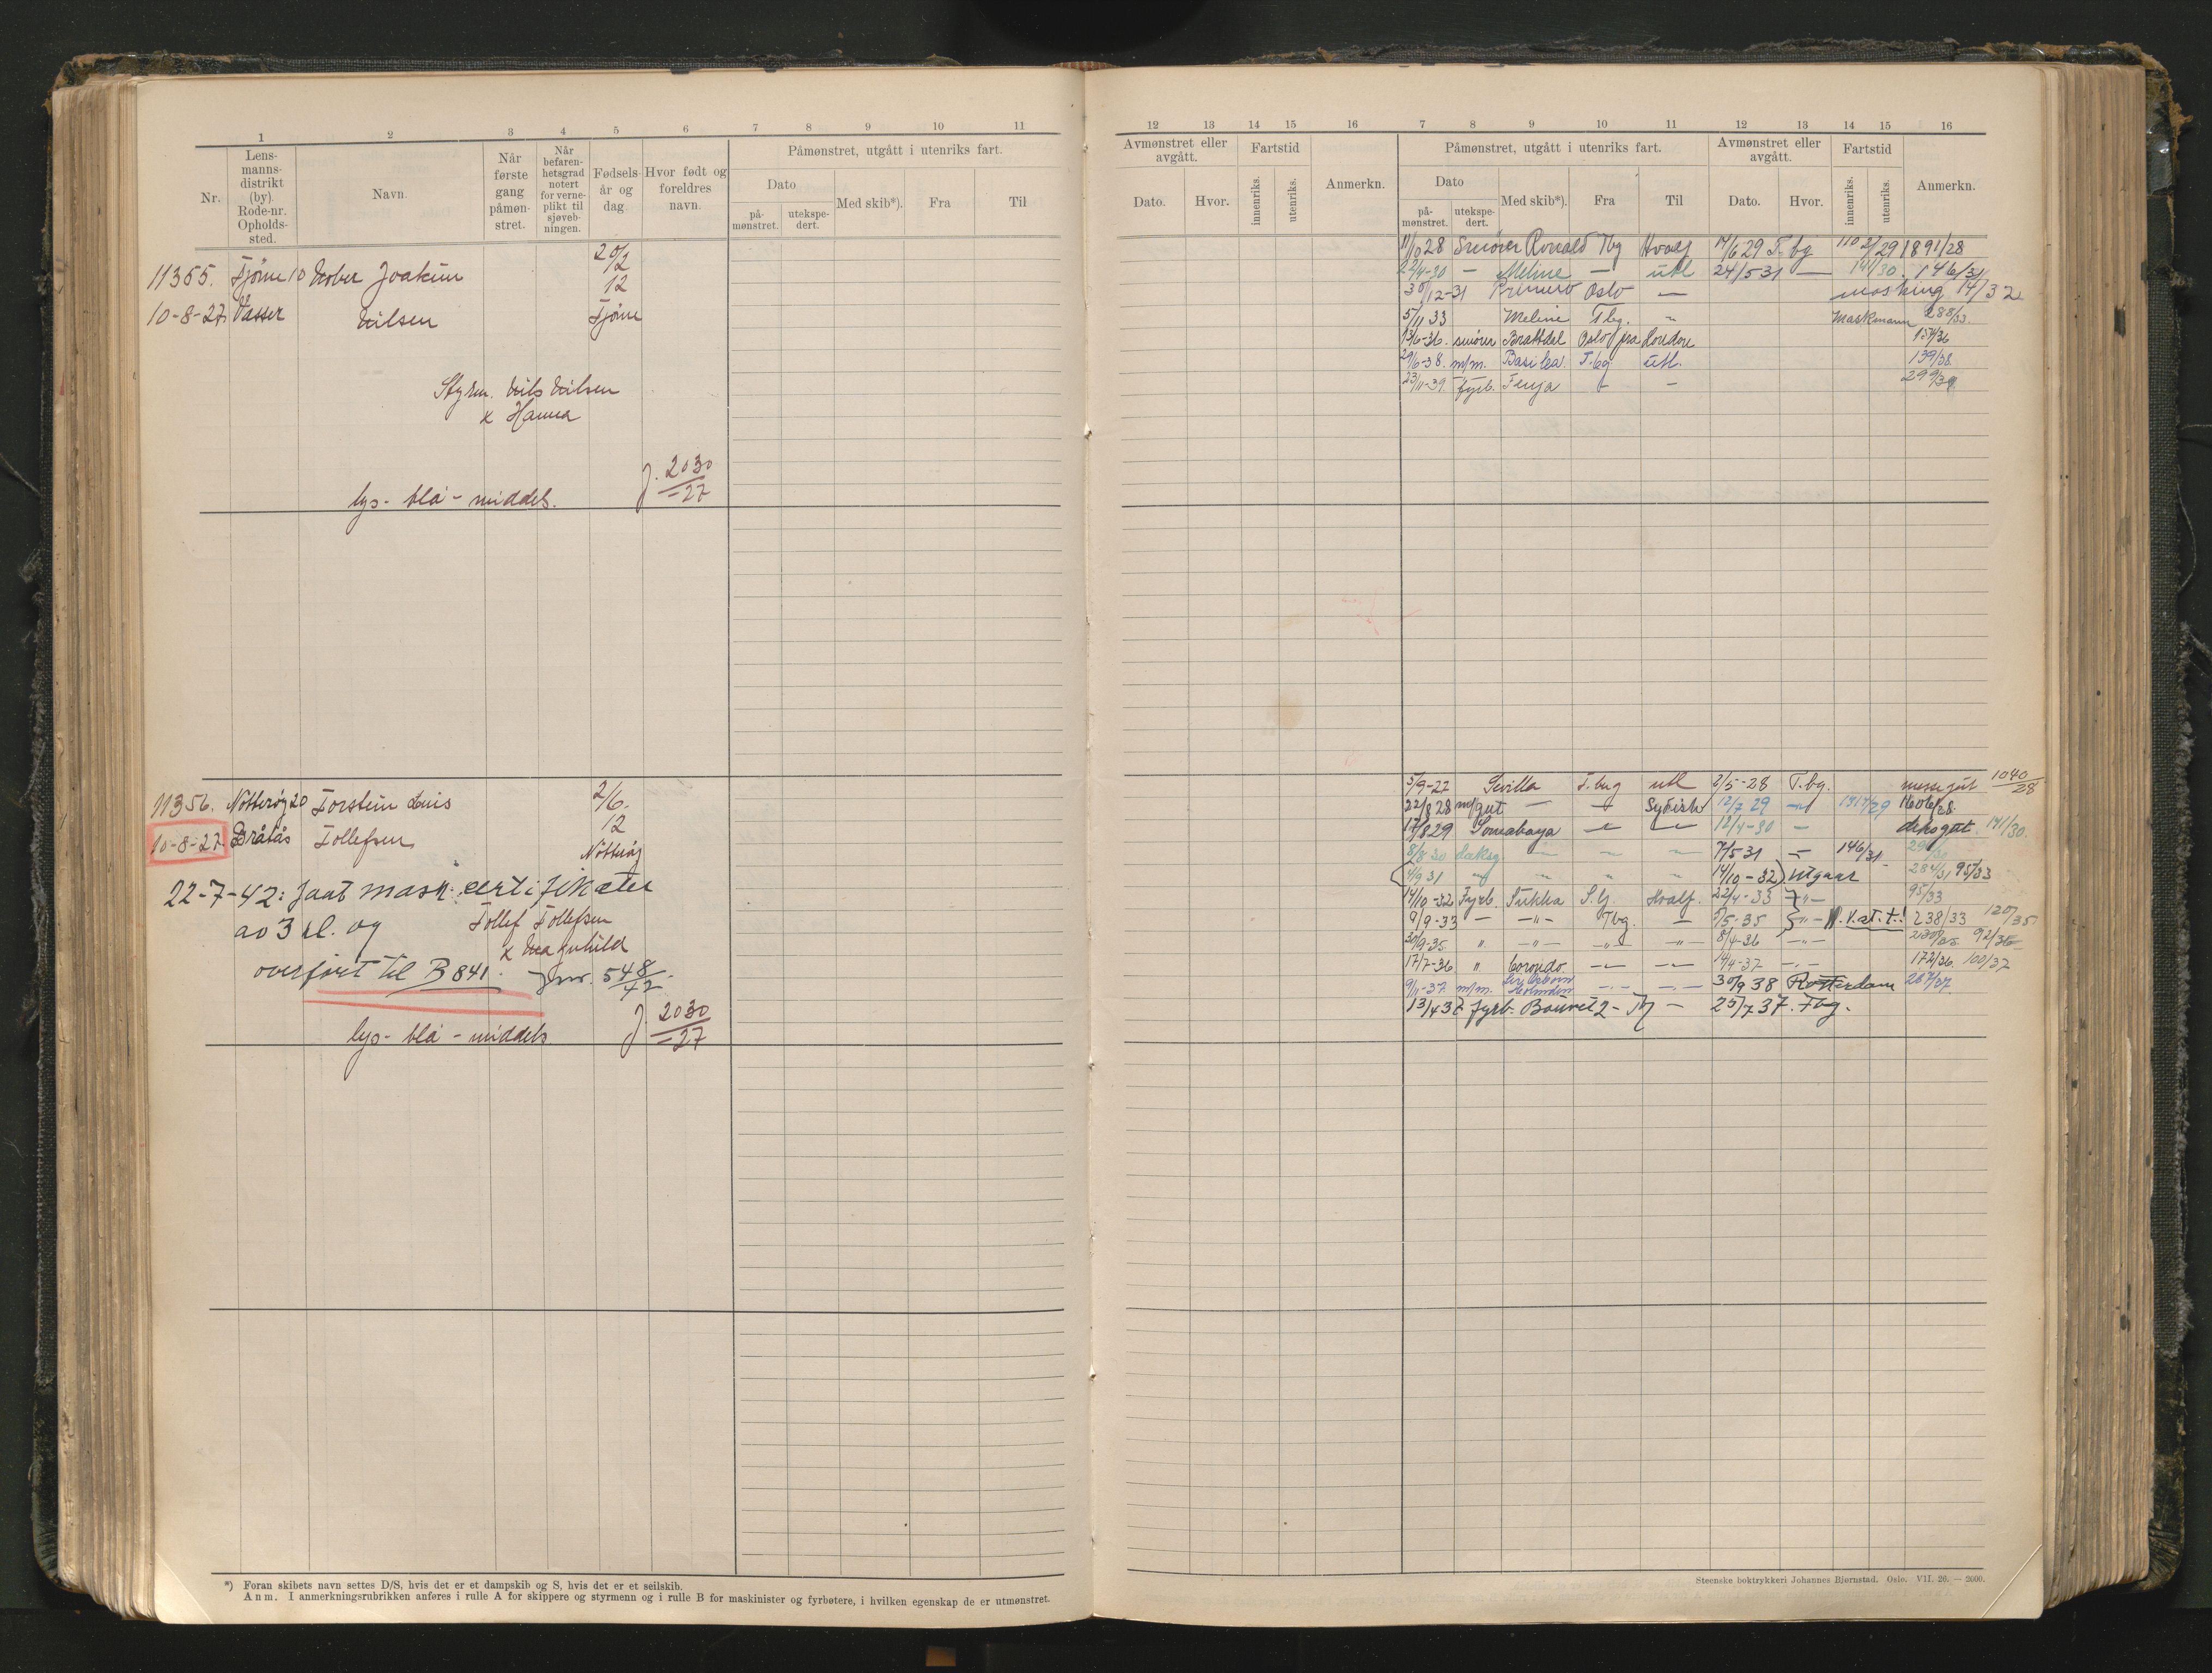 1 2 3 4 5 6 7 8 9 10 11
Nr.
Lens-
manns-
distrikt
(by).
Rode-nr.
Opholds-
sted.
Navn.
Når
første
gang
påmøn-
stret.
Når
befaren-
hetsgrad
notert
for verne-
plikt til
sjøveb-
ningen.
Fødsels-
år og
dag.
Hvor født og
foreldres
navn.
Påmønstret, utgått i utenriks fart.
Dato
på-
mønstret.
utekspe-
dert.
Med skib*).
Fra
Til
11355. Tjöme 10 Nober Joakim 20/2 12
10-8-27. Vasser Nilsen Tjöme
Styrm. Nils Nilsen
x Hanna
lys- blå - middels. J. 2030/-27
11356. Nötteröy 20 Torstein Luis 2/6. 12
10-8-27. Bråtås Tollefsen Nötteröy
22-7-42: Faat mask. certifikater
av 3 kl. og
Tollef Tollefsen
x Magnhild
overført til B 841. Jnr. 548/42.
lys- blå - middels J. 2030/-27
*) Foran skibets navn settes D/S, hvis det er et dampskib og S, hvis det er et seilskib.
Anm. I anmerkningsrubrikken anføres i rulle A for skippere og styrmenn og i rulle B for maskinister og fyrbøtere, i hvilken egenskap de er utmønstret.
12 13 14 15 16 7 8 9 10 11 12 13 14 15 16
Avmønstret eller
avgått.
Dato.
Hvor.
Fartstid
innenriks.
utenriks.
Anmerkn.
Påmønstret, utgått i utenriks fart.
Dato
på-
mønstret.
utekspe-
dert.
Med skib*).
Fra
Til
Avmønstret eller
avgått.
Dato.
Hvor.
Fartstid
innenriks.
utenriks.
Anmerkn.
11/10 28 Smører Ronald Tbg Hvalf 14/6 29 T.bg 1891/28
22/4-30 - Meline - utl 24/5 31 - 141/30. 146/31
30/12-31 Primero Oslo - 14/32
5/11 33 Meline Tbg. " Maskmann 288/33.
13/6-36. smører Brattdal Oslo fra Horden 154/36
29/6-38. m/m. Basilea T.bg utl. 139/38.
23/11-39. fyrb. Fenja - - 299/39
5/9-27 Sevilla T.bug utl 2/5-28 T.bg. messegut 1040/28
22/8 28 m/gut - - Sydish 12/7 29 - 1317/29 1606/28.
17/8 29 Sourabaya - - 12/4-30 - deksgut. 141/30.
8/8 30 daksg - - - 7/5 31 - 146/31
4/9 31 " " " " 14/10-32 utgaar 284/31 95/33
14/10-32 Fyrb. Pukka S.fj. Hvalf. 22/4-33 - " - 95/33
9/9-33 - - " - Tbg. - 5/5-35 - " - 238/33 120/35
30/9-35 " - " - - " - - " - 8/4-36 - " - 92/36
17/7-36 " Corondo - - 14/4-37 - " - 172/36. 100/37
9/11-37 m/m. Sir Osborn Holmden - " - - " - 30/9 38 Rotterdam 267/37.
13/4 37 fyrb. Bouvet 2 - Tbg - 25/7 37. Tbg.
Steenske boktrykkeri Johannes Bjørnstad. Oslo. VII. 26. — 2000.